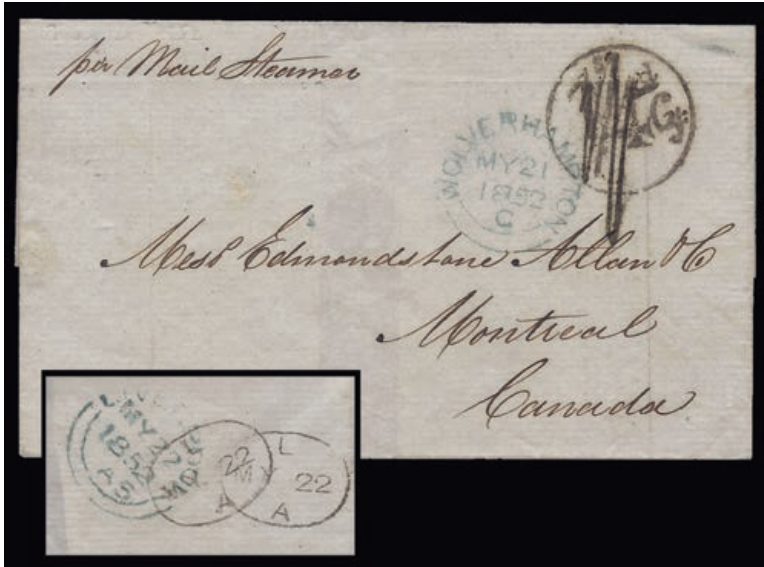 per Mail Steamer
WOLVERHAMPTON
MY 21
1852
C
Messrs Edmondstone Allan & Co
Montreal
Canada
MY 22
1852
AS
22
M
A
L
22
A